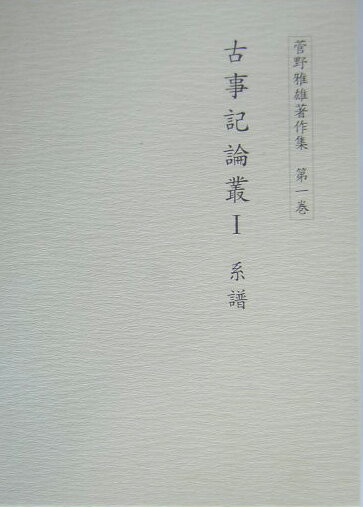 菅野雅雄著作集 第一巻
古事記論叢Ⅰ 系譜